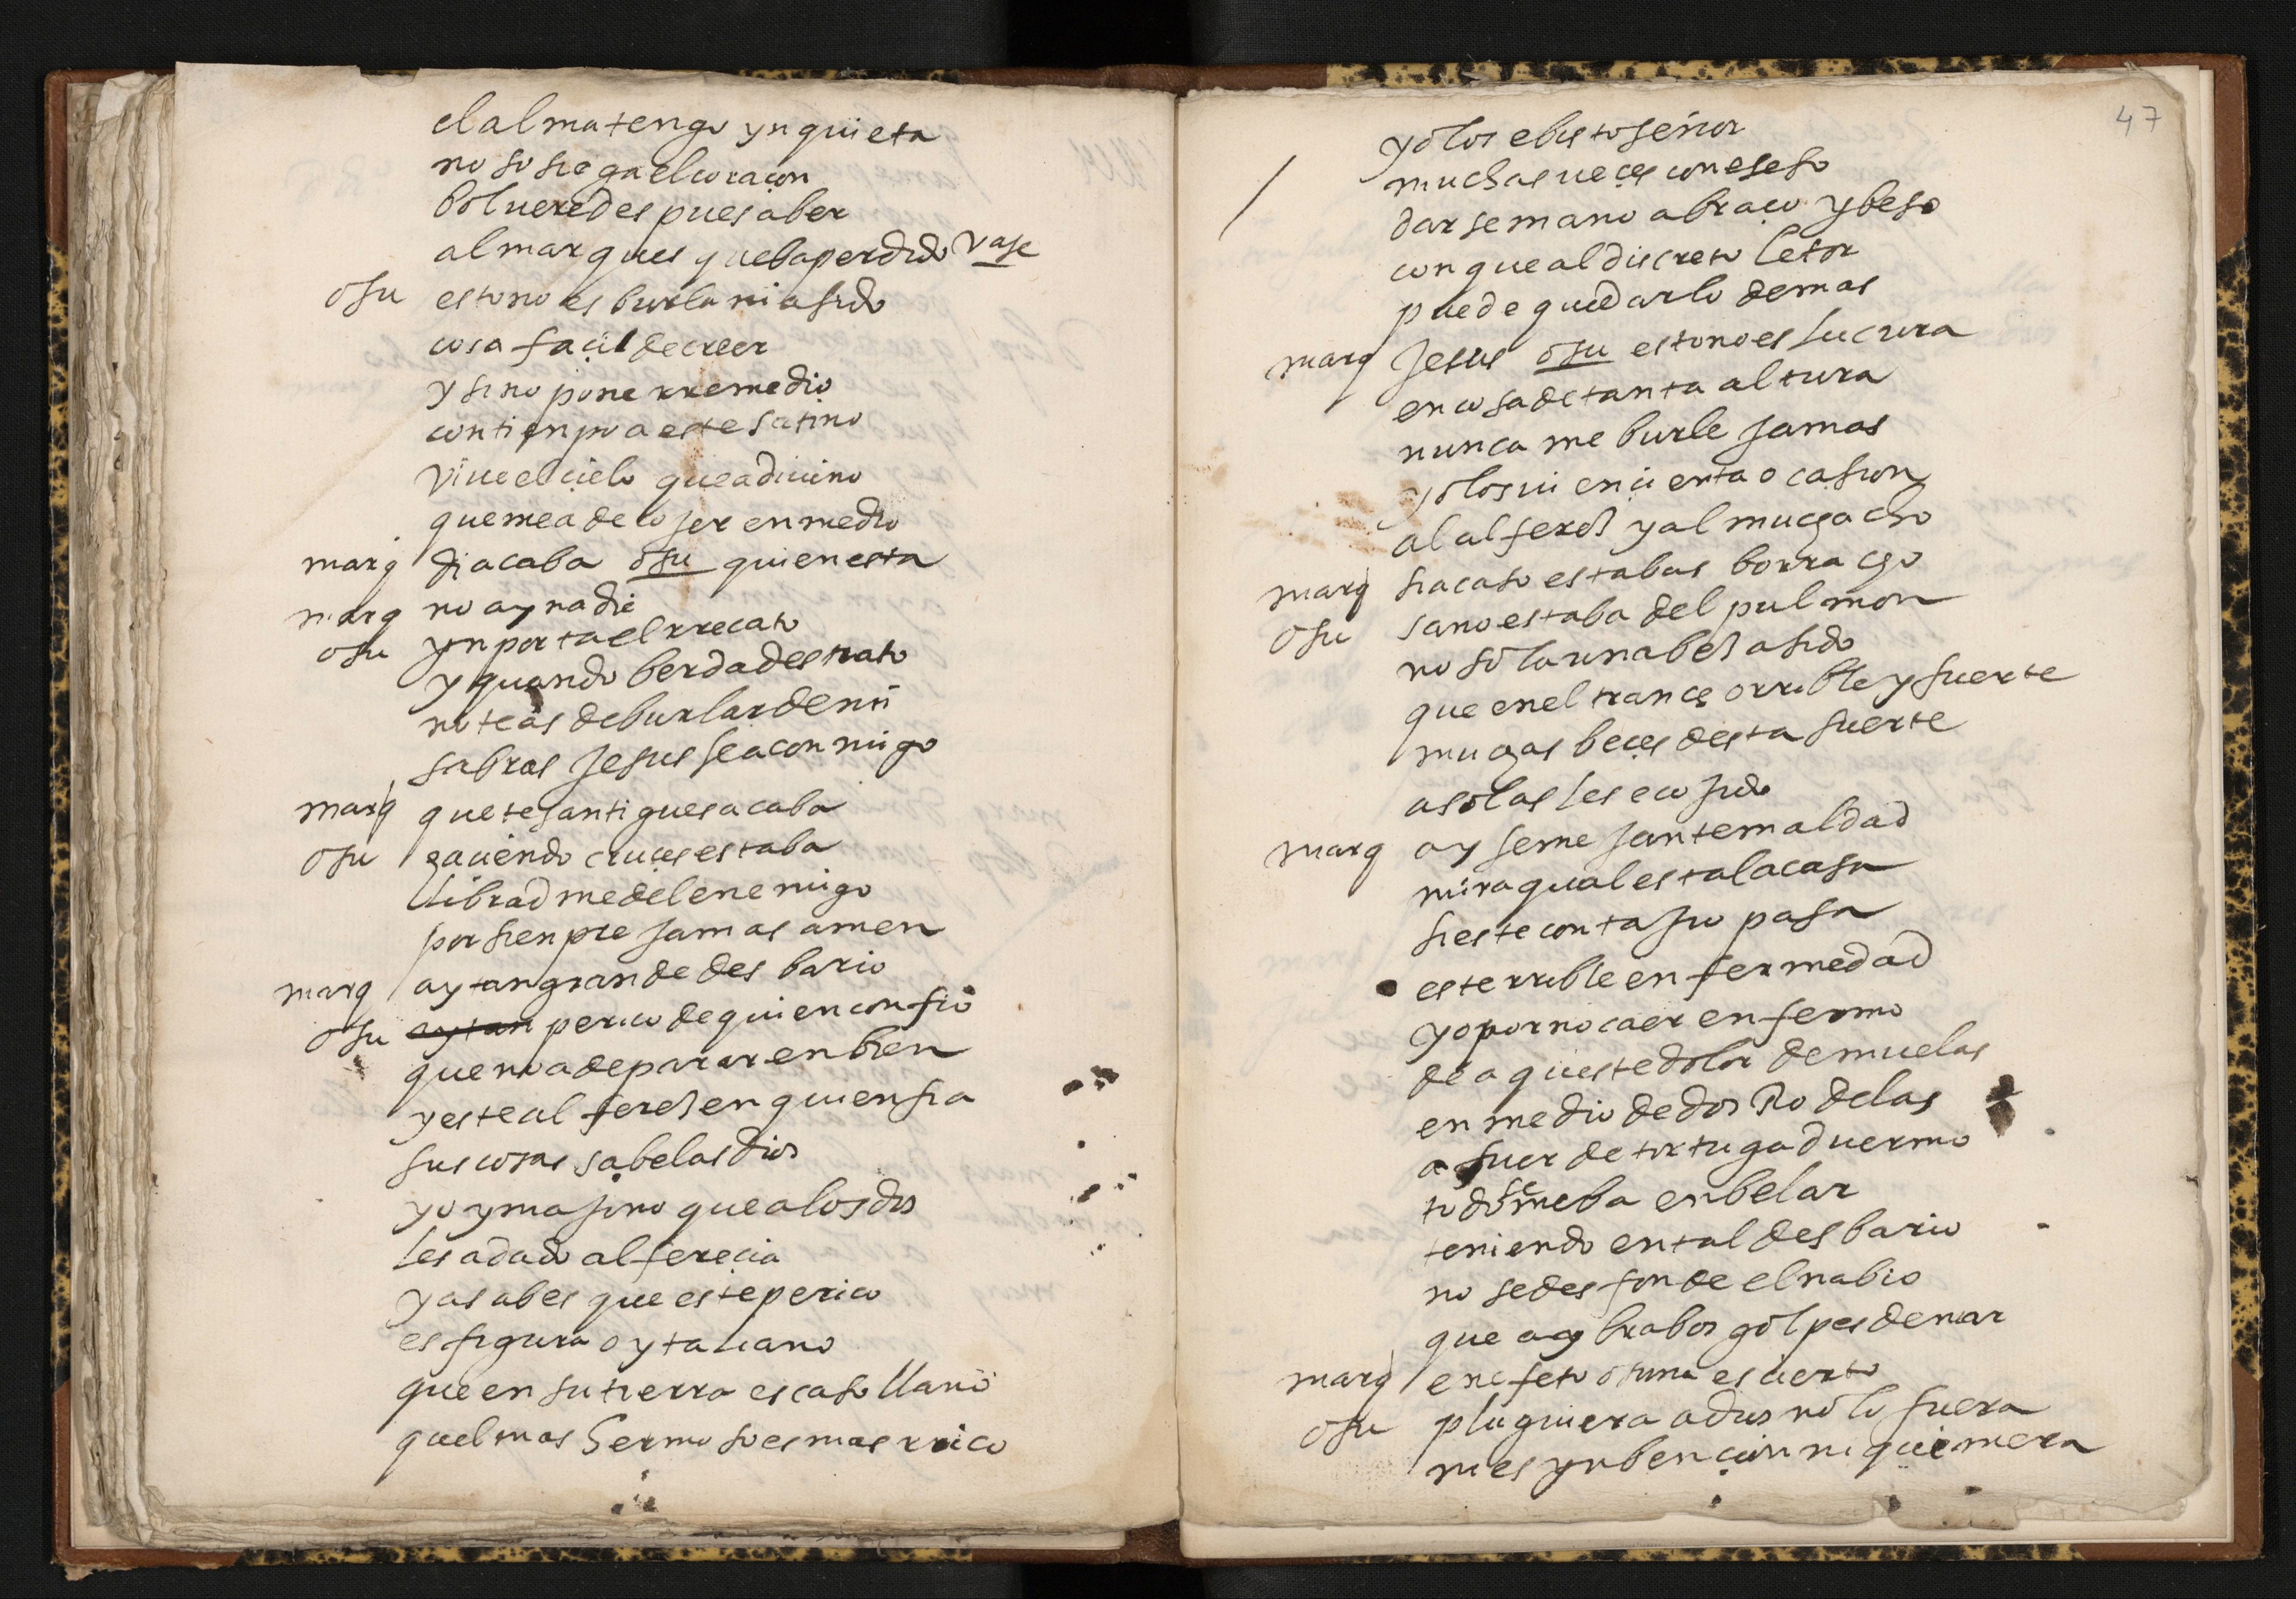 el alma tengo ynquieta
no sosiega el coraçon
bolvere despues a ber
al marques que ba perdido vase
osu esto no es burla ni a sido
cosa façil de creer
y si no pone rremedio
con tienpo a este satino
vive el cielo que adivino
que me a de cojer en medio
marq di acaba osu quien esta
marq no ay nadie
osu ynporta el rrecato
y quando berdades trato
no te as de burlar de mi
sabras Jesus sea conmigo
marq que te santigues acaba
osu haciendo cruces estaba
libradme del enemigo
por sienpre jamas amen
marq ay tan grande desbario
osu perico de quien confio
que no a de parar en bien
y este alferez en quien fia
sus cosas sabelas dios
yo ymajino que a los dos
les a dado alferecia
ya sabes que este perico
es figura o ytaliano
que en su tierra es caso llano
quel mas hermoso es mas rrico
47
yo los e bisto señor
muchas veçes con eseso
darse mano abraço y beso
con que al discreto letor
puede quedar lo demas
marq Jesus osu esto no es lucura
en cosa de tanta altura
nunca me burle jamas
yo los vi en çierta ocasion
al alferez y al muchacho
marq si acaso estabas borracho
osu sano estaba del pulmon
no sola una bez a sido
que en el trançe orrible y fuerte
muchas beçes desta suerte
a solas les e cojido
marq ay semejante maldad
mira qual esta la casa
si este contajio pasa
es terrible enfermedad
yo por no caer enfermo
de aqueste dolor de muelas
en medio de dos Rodelas
a fuer de tortuga duermo
todo se me ba en belar
teniendo en tal desbario
no se desfonde el nabio
que ay brabos golpes de mar
marq en efeto osuna es cierto
osu pluguiera a dios no lo fuera
ni es ynbençion ni quimera